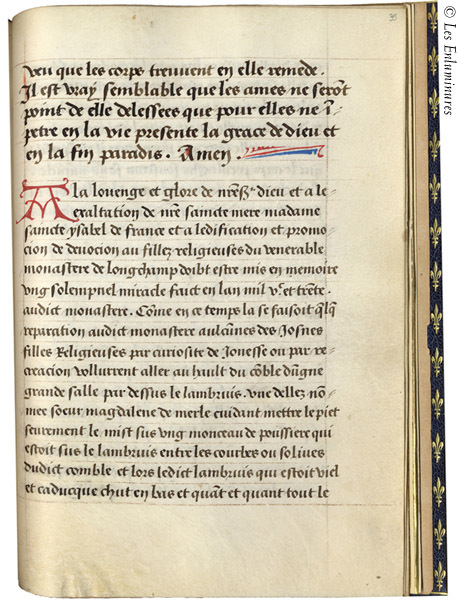 35
© Les Enluminures
veu que les corps treuvent en elle remede.
Il est vray semblable que les ames ne serõt
point de elle delessees que pour elles ne ĩ-
petre en la vie presente la grace de dieu et
en la fin paradis. Amen.
A la louenge et glore de nre dieu et a le-
exaltation de nre saincte mere madame
saincte ysabel de france et a ledification et promo-
cion de devocion au fillez religieuses du venerable
monastere de longchamp doibt estre mis en memoire
ung solempnel miracle faict en lan mil vc et trente.
audict monastere. Cõme en ce temps la se faisoit qlq
reparation audict monastere aulcũnes des Josnes
filles Religieuses par curiosite de Jonesse ou par re-
creacion vollurent aller au hault du cõble dũgne
grande salle par dessus le lambruis. vne dellez nõ-
mee soeur magdalene de merle cuidant mettre le piet
seurement le mist sus ung monceau de poussiere qui
estoit sus le lambruis entre les courbes ou solives
dudict comble et lors ledict lambruis qui estoit viel
et caducque chut en bas et quãt et quant tout le